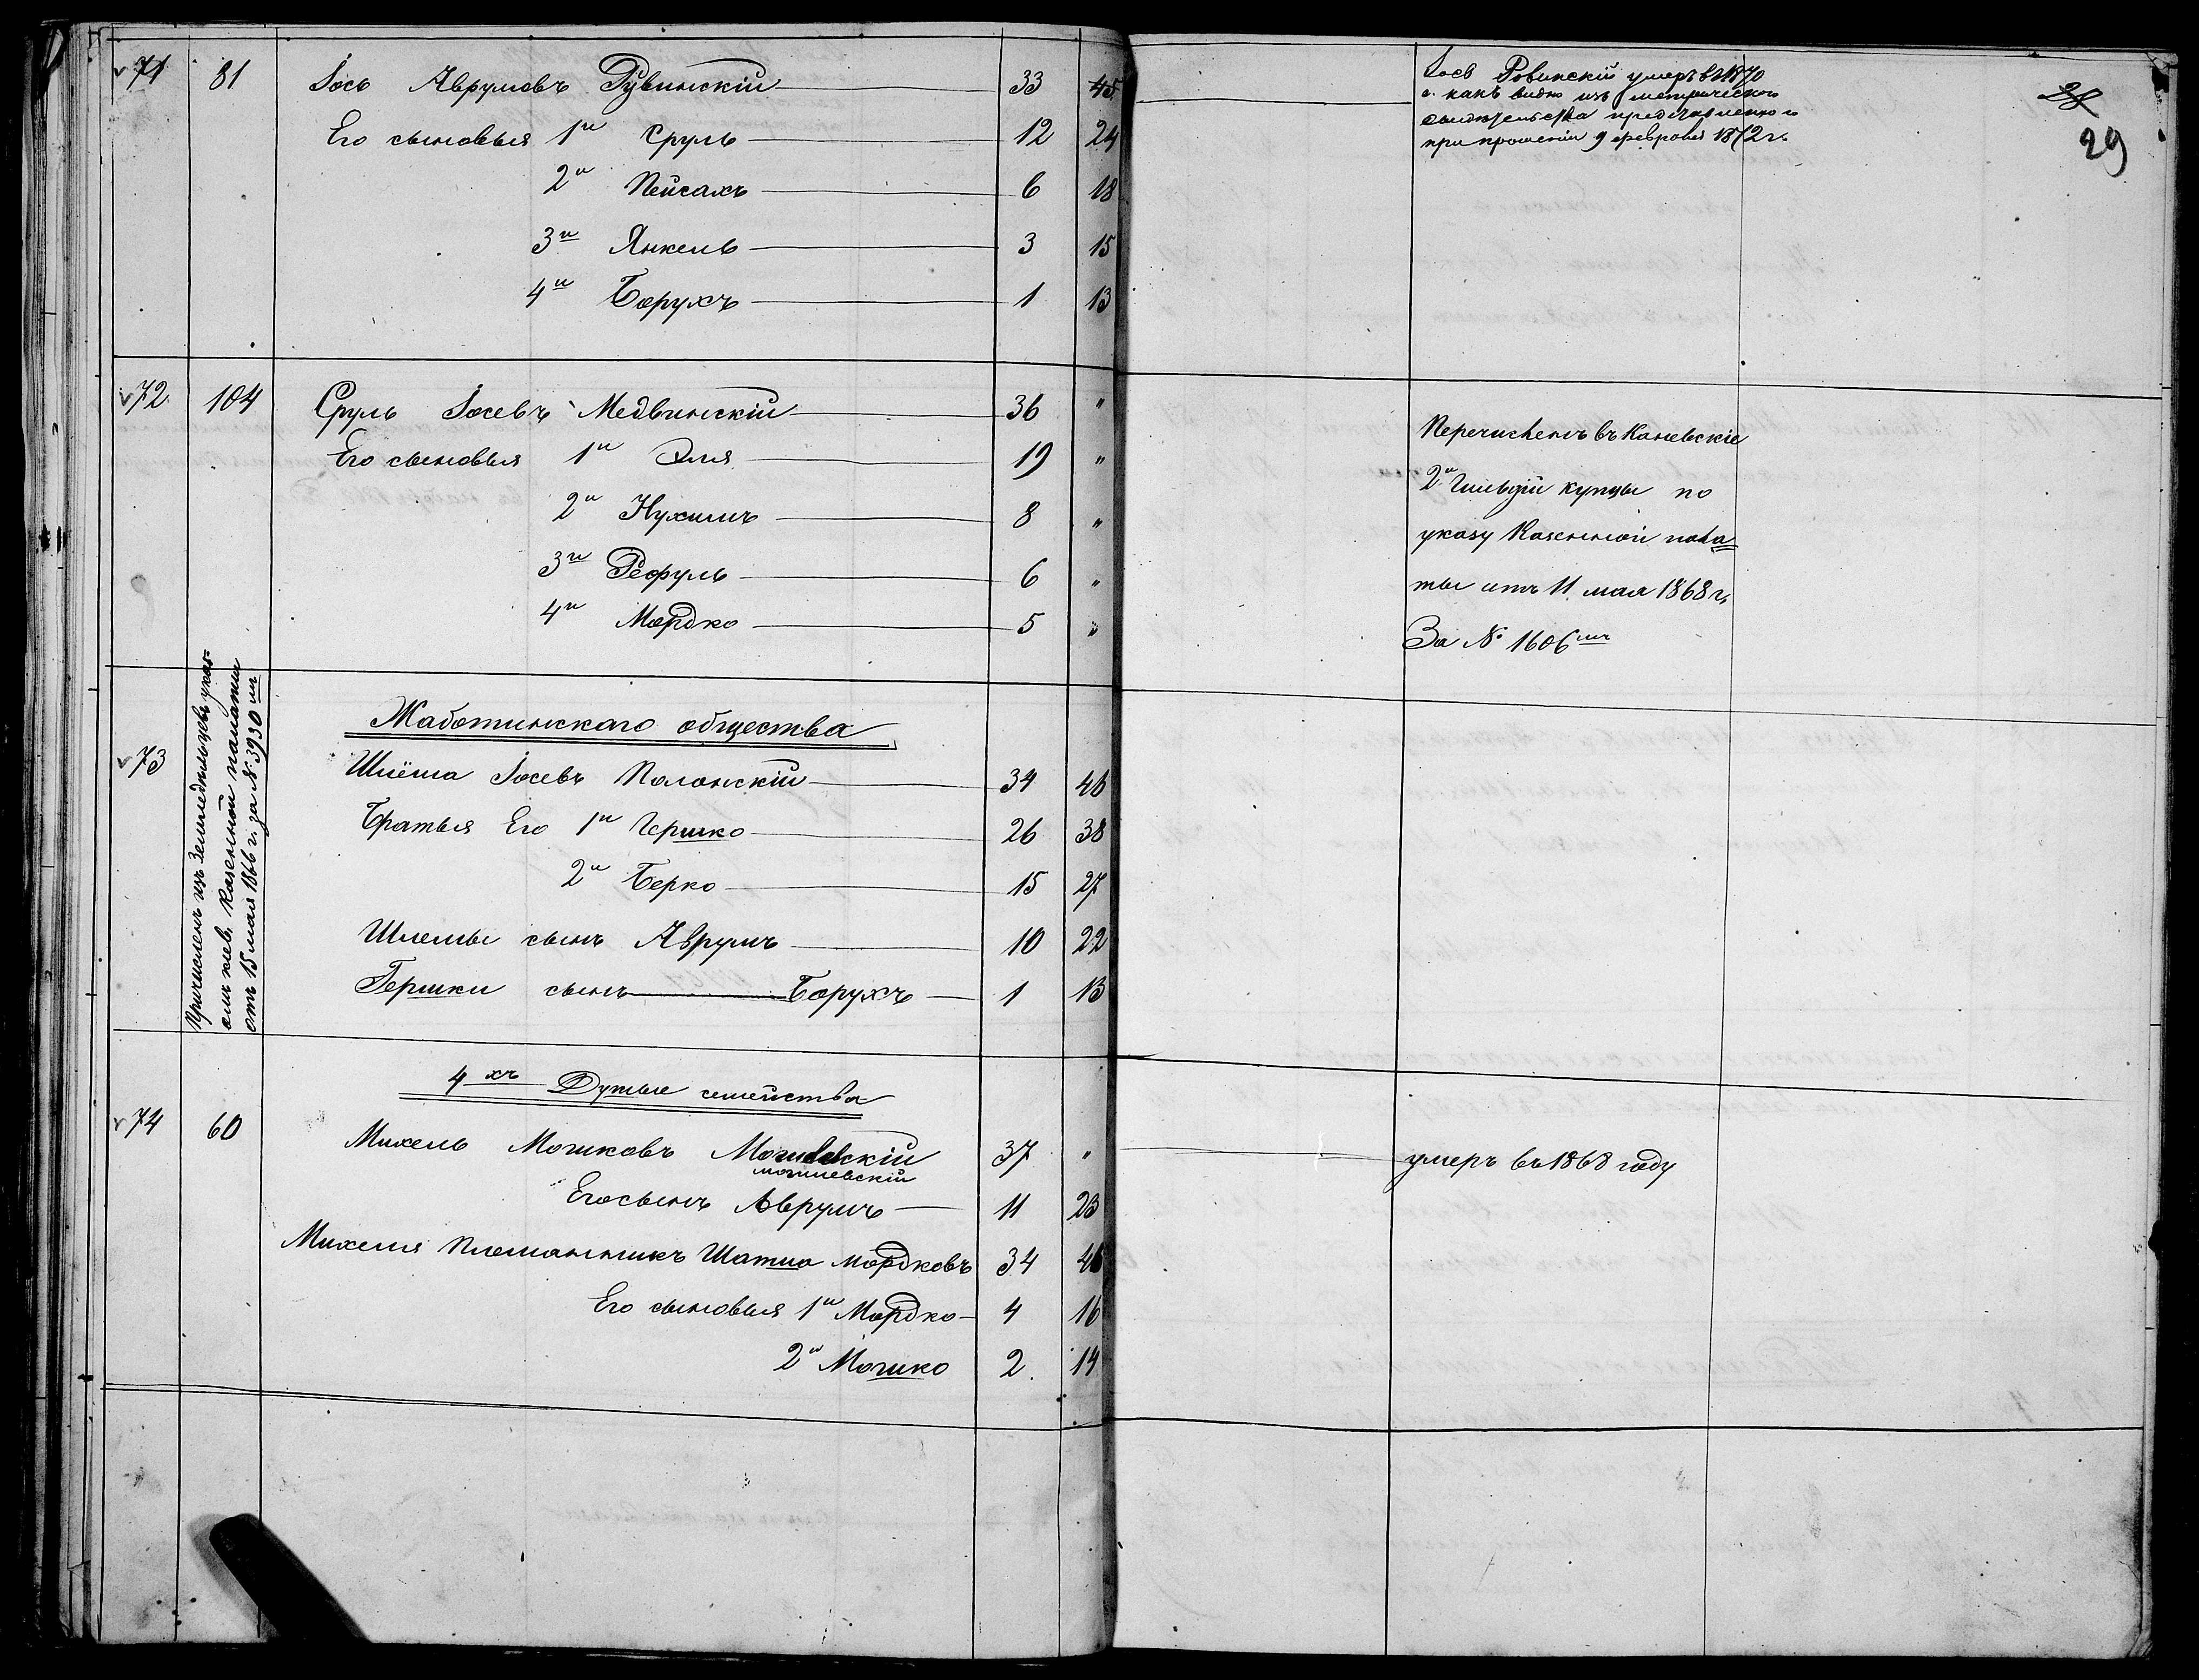 71 81 Іось Аврумовъ Рувинскій 33 45
Его сыновья 1й Сруль 12 24
2й Пейсахъ 6 18
3й Янкель 3 15
4й Борухъ 1 13
72 104 Сруль Іосевъ Медвинскій 36 "
Его сыновья 1й Эля 19 "
2й Нухимъ 8 "
3й Рефуль 6 "
4й Мордко 5 "
Жаботинскаго общества
73 Шлёма Іосевъ Полонскій 34 46
Братья Его 1й Гершко 26 38
2й Берко 15 27
Шлемы сынъ Аврумъ 10 22
Гершки сынъ Борухъ 1 13
Причисленъ изъ Земледельцевъ указ=
омъ Киев. Казенной палаты
отъ 15 мая 1866 г. за № 3930мъ
4хъ Дутые семейства
74 60 Михель Мошковъ 37 "
могилевскій
Его сынъ Аврумъ 11 23
Михеля Племянникъ Шатио Мордковъ 34 46
Его сыновья 1й Мордко 4 16
2й Мошко 2 14
Іось Ровинскій умеръ въ 1870
г. какъ видно изъ метрическаго
свидетельства представленнаго
при прошеніи 9 февраля 1872 г.
28
29
Перечисленъ въ Каневскіе
2й Гильдіи купцы по
указу Казенной пала
ты отъ 11 мая 1868 г.
За № 1606мъ
умеръ въ 1868 году